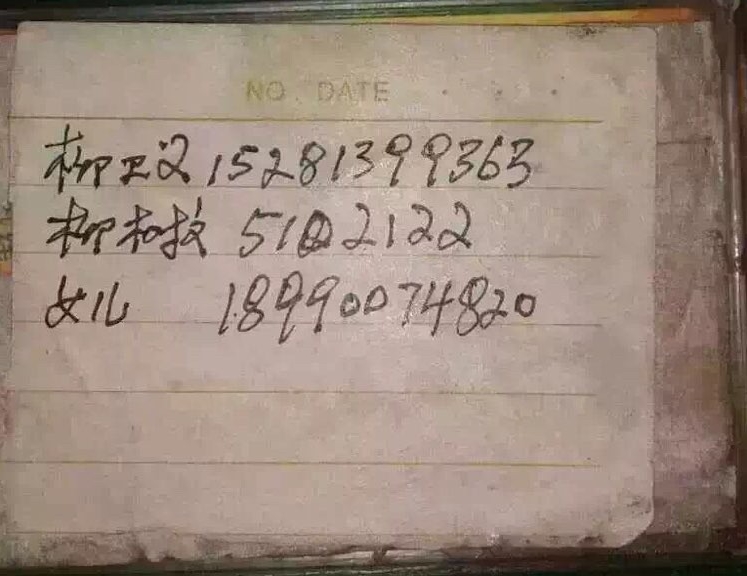 NO. DATE
柳卫汉 15281399363
柳和技 5102122
女儿 18990074820